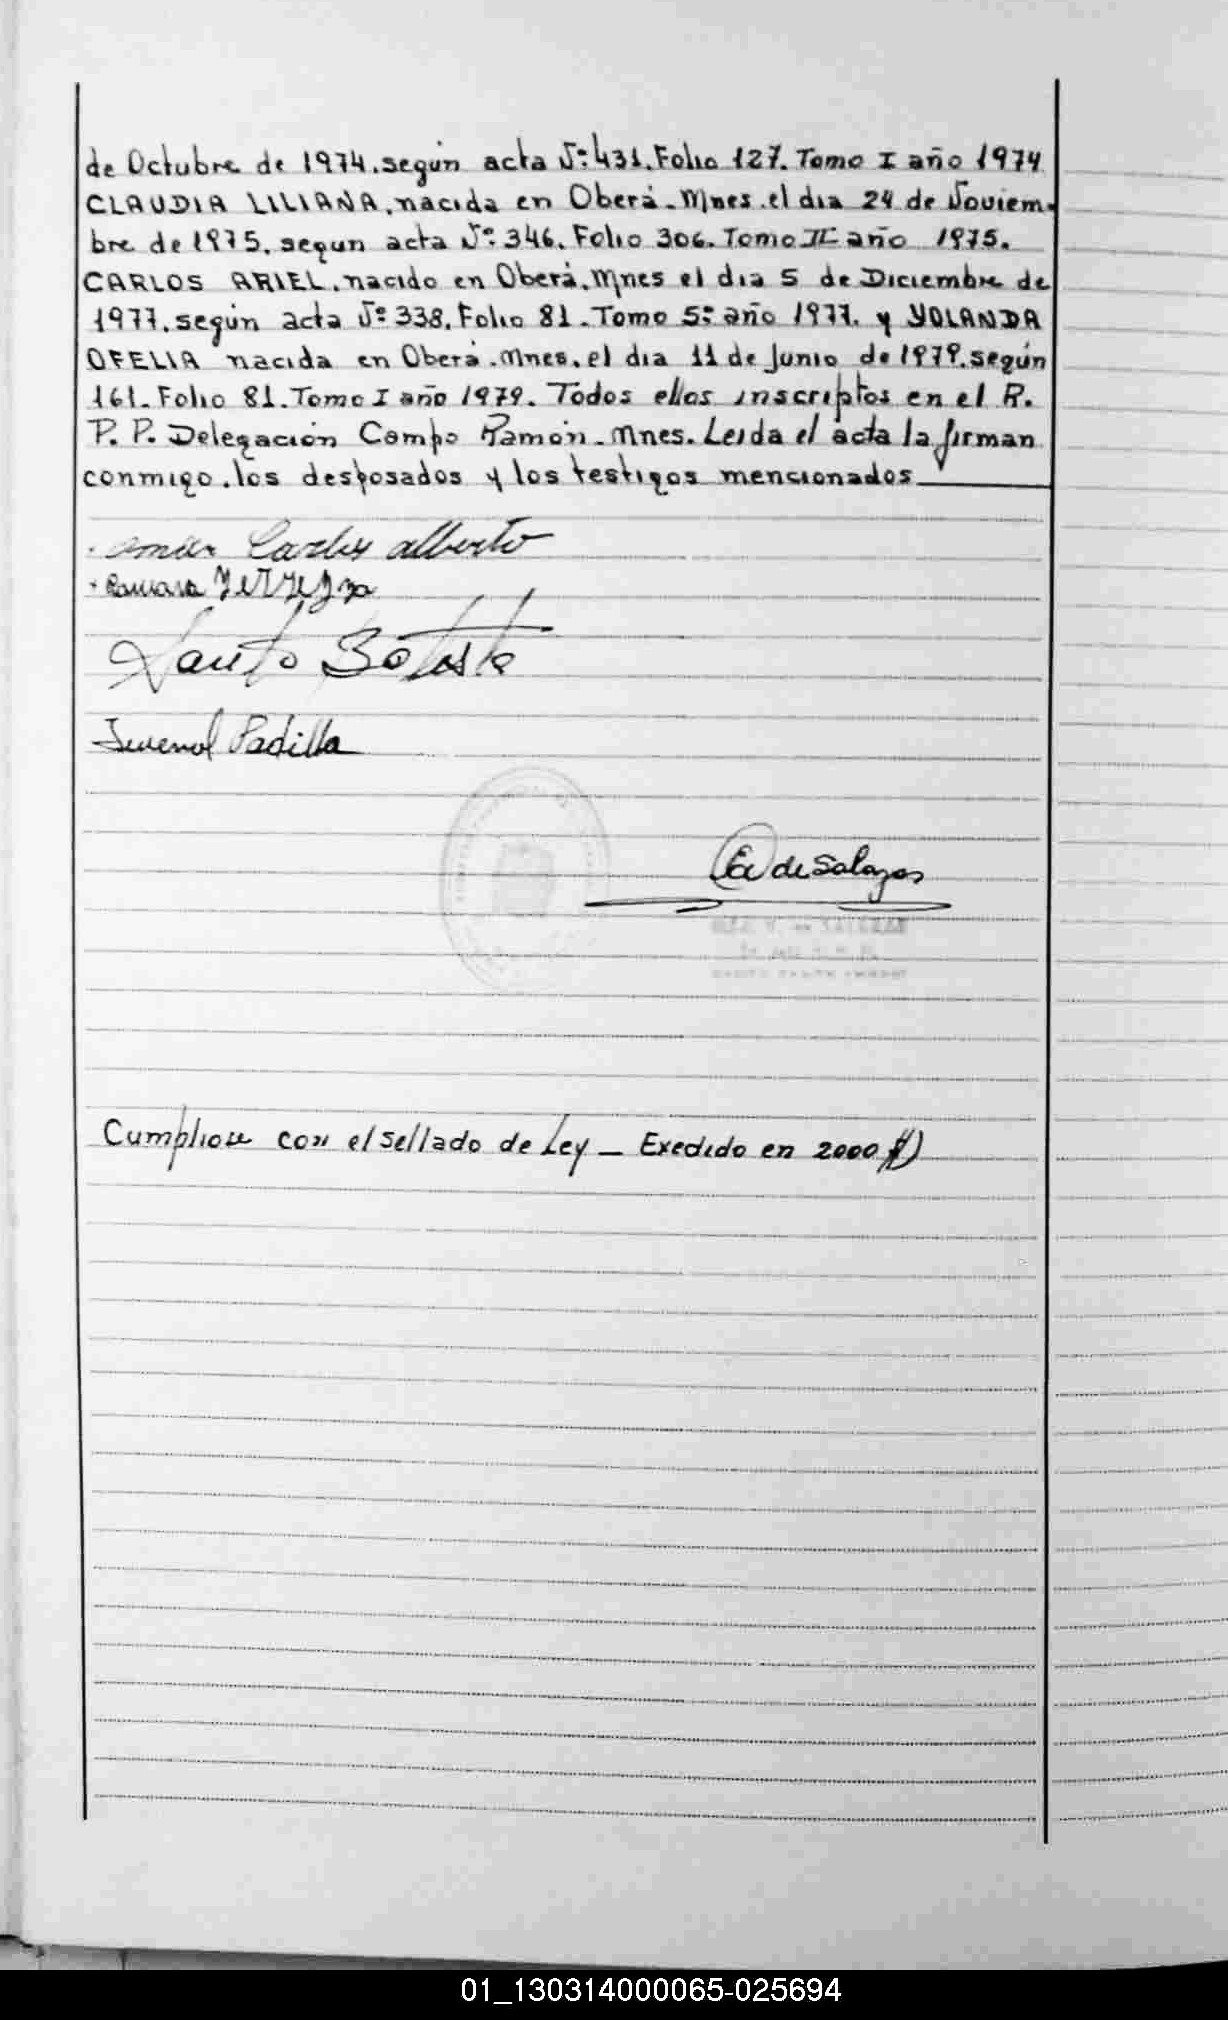 de Octubre de 1974. según acta Nº: 431. Folio 127. Tomo I año 1974
CLAUDIA LILIANA, nacida en Oberá. Mnes. el dia 24 de Noviem-
bre de 1975. segun acta Nº: 346. Folio 306. Tomo II año 1975.
CARLOS ARIEL, nacido en Oberá. Mnes el dia 5 de Diciembre de
1977. según acta Nº: 338. Folio 81. Tomo 5º: año 1977. y YOLANDA
OFELIA nacida en Oberá. Mnes. el dia 11 de Junio de 1979. según
161. Folio 81. Tomo I año 1979. Todos ellos inscriptos en el R.
P. P. Delegación Campo Ramón. Mnes. Leida el acta la firman
conmigo. los desposados y los testigos mencionados
Carlos alberto
Ramona
Santo Batista
Juvenal Padilla
de Salazar
Cumpliose con el sellado de Ley - Exedido en 2000 $)
01_130314000065-025694